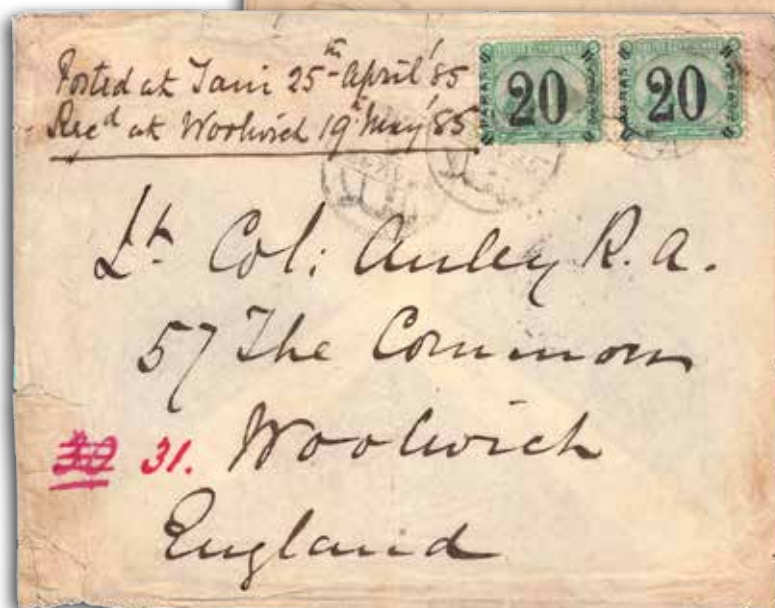 Posted at Tani 25th April '85
Recd at Woolwich 19th May '85
20 20
PARAS PARAS
Lt. Col: Auley R. A.
57 The Common
31. Woolwich
England